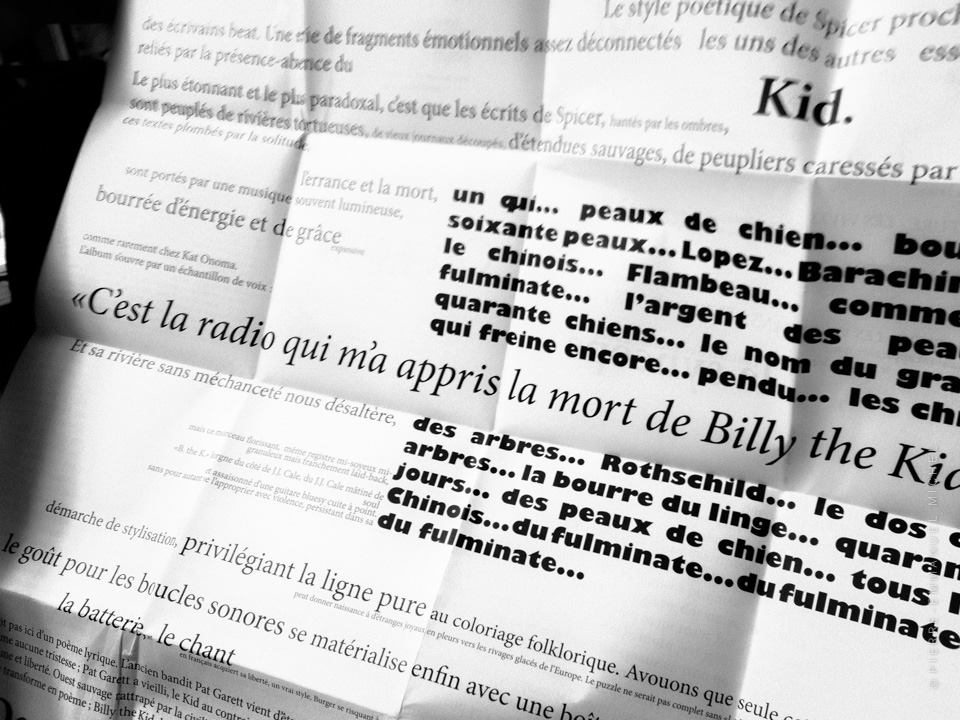 Le style poétique de Spicer
des écrivains beat. Une de fragments émotionnels assez déconnectés les uns des autres
reliés par la présence-absence du
Kid.
Le plus étonnant et le plus paradoxal, c'est que les écrits de Spicer, hantés par les ombres,
sont peuplés de rivières tortueuses, de vieux journaux découpés, d'étendues sauvages, de peupliers caressés par
ces textes plombés par la solitude
sont portés par une musique souvent lumineuse,
Terrance et la mort,
bourrée d'énergie et de grâce
comme rarement chez Kat Onoma.
L'album s'ouvre par un échantillon de voix :
un qui... peaux de chien... bou
soixante peaux... Lopez... Barachin
le chinois... Flambeau... comme
fulminate... l'argent des pea
quarante chiens... le nom du gra
qui freine encore... pendu... les ch
«C'est la radio qui m'a appris la mort de Billy the Kid
Et sa rivière sans méchanceté nous désaltère,
des arbres... Rothschild... le dos
arbres... la bourre du linge... quaran
jours... des peaux de chien... tous l
Chinois...du fulminate...du fulminate
du fulminate...
mais ce morceau florissant, même registre mi-soyeux mi-
granuleux mais franchement laid-back,
«B. the K.» lorgne du côté de J.J. Cale, du J.J. Cale mâtiné de
soul
et assaisonné d'une guitare bluesy-cuite à point,
sans pour autant se l'approprier avec violence, persistant dans sa
démarche de stylisation, privilégiant la ligne pure au coloriage folklorique. Avouons que seule
peut donner naissance à d'étranges joyaux en pleurs vers les rivages glacés de l'Europe. Le puzzle ne serait pas complet sans
le goût pour les boucles sonores se matérialise enfin avec une boît
la batterie, le chant
en français acquiert sa liberté, un vrai style. Burger se risquant
pas ici d'un poème lyrique. L'ancien bandit Pat Garett vient d'êt
aucune tristesse ; Pat Garett a vieilli, le Kid au contrai
et liberté. Ouest sauvage rattrapé par la civil
transforme en poème ; Billy the Kid,